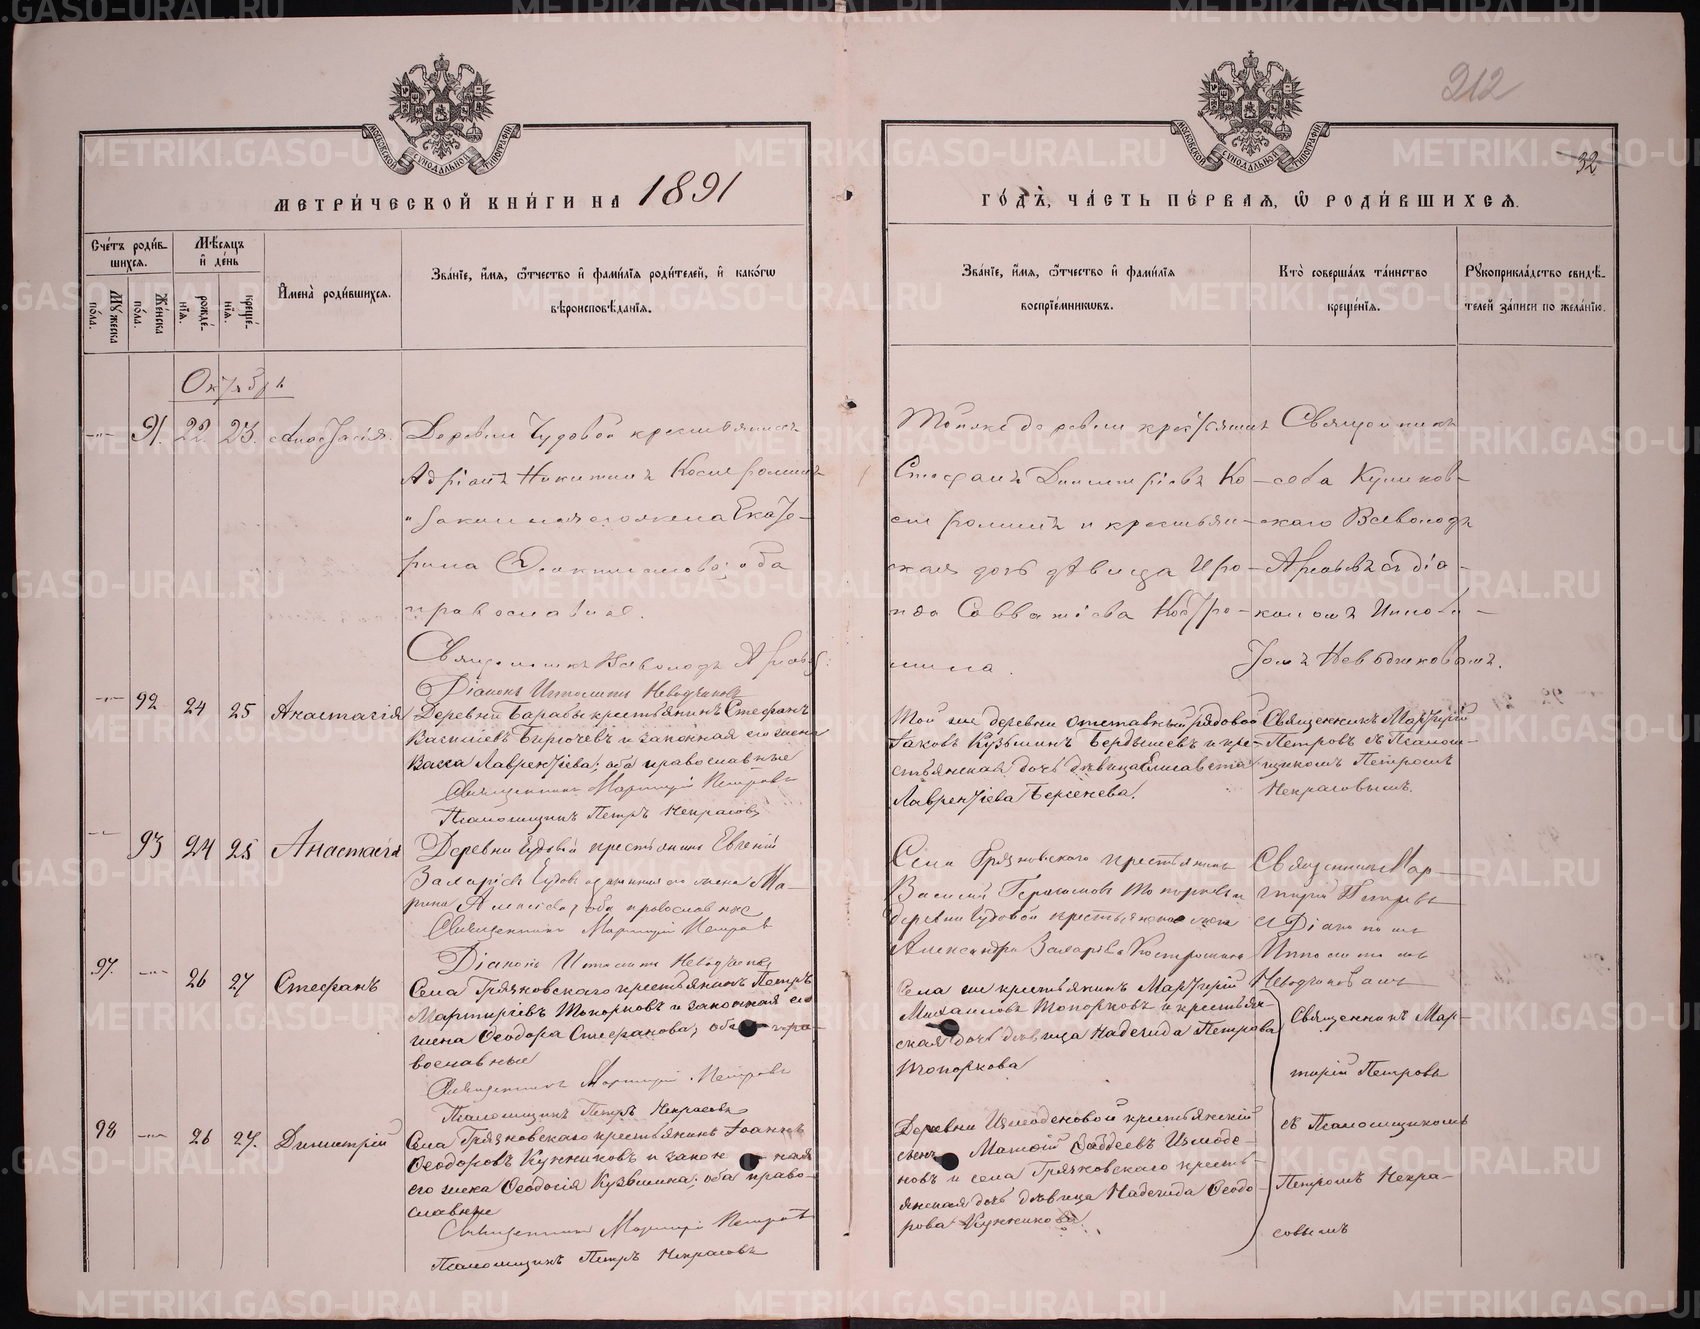 212
32
МОСКОВСКОЙ СУНОДАЛЬНОЙ ТИПОГРАФІИ
МОСКОВСКОЙ СУНОДАЛЬНОЙ ТИПОГРАФІИ
МЕТРИ́ЧЕСКОЙ КНИ́ГИ НА 1891
ГО́ДЪ, ЧА́СТЬ ПЕ́РВАѦ, Ѽ РОДИ́ВШИХСѦ.
Сче́тъ роди́в-
шихсѧ.
Му́жеска
по́ла.
Же́нска
по́ла.
Мѣ́сѧцъ
и҆ де́нь
рожде́-
нїѧ.
креще́-
нїѧ.
И҆мена̀ роди́вшихсѧ.
Зва́нїе, и҆́мѧ, ѻ҆́тчество и҆ фами́лїѧ роди́телей, и҆ како́гѡ
вѣроисповѣ́данїѧ.
Зва́нїе, и҆́мѧ, ѻ҆́тчество и҆ фами́лїѧ
воспрїе́мникѡвъ.
Кто̀ соверша́лъ та́инство
креще́нїѧ.
Рꙋкоприкла́дство свидѣ́-
телей за́писи по жела́нїю.
Октябрь
—"— 91. 22. 23. Анастасія.
Деревни Чудовой крестьянинъ
Адріанъ Никитинъ Костроминъ
и законная его жена Екате-
рина ; оба
православные.
Священникъ Всеволодъ
Діаконъ Ипполитъ Неводчиковъ
Тойже деревни крестьянинъ
Стефанъ Димитріевъ Ко-
строминъ и крестьян-
ская дочь дѣвица Иро-
ида Савватіева Костро-
мина.
Священникъ
села Куликов-
скаго Всеволодъ
съ діа-
кономъ Иппол-
томъ Неводчиковымъ.
—"— 92 24 25 Анастасія
Деревни Барабы крестьянинъ Стефанъ
Васильевъ Бирючевъ и законная его жена
Васса Лаврентіева; оба православные
Священникъ Мартирій Петровъ
Псаломщикъ Петръ Некрасовъ
Той же деревни отставный рядовой
Іаковъ Кузьминъ Бердышевъ и кре-
стьянская дочь дѣвица Елисавета
Лаврентіева Берсенева.
Священникъ Мартирій
Петровъ съ Псалом-
щикомъ Петромъ
Некрасовымъ.
—"— 93 24 25 Анастасія
Деревни Чудовой крестьянинъ Евгеній
Захаріевъ Чудовъ законная его жена Ма-
рина Алексіева; оба православные
Священникъ Мартирій Петровъ
Діаконъ Ипполитъ Неводчиковъ
Села Грязновскаго крестьянинъ
Василій Герасимовъ Топорковъ и
деревни Чудовой крестьянская жена
Александра Захаріева Костромина
Священникъ Мар-
тирій Петровъ
съ Діакономъ
Ипполитомъ
Неводчиковымъ
97. —"— 26 27 Стефанъ
Села Грязновскаго крестьянинъ Петръ
Мартиріевъ Топорковъ и законная его
жена Ѳеодора Стефанова; оба пра-
вославные
Священникъ Мартирій Петровъ
Псаломщикъ Петръ Некрасовъ
Села же крестьянинъ Мартирій
Михаиловъ Топорковъ и крестьян-
ская дочь дѣвица Надежда Петрова
Топоркова
Священникъ Мар-
тирій Петровъ
съ Псаломщикомъ
Петромъ Некра-
совымъ
98 —"— 26 27. Димитрій
Села Грязновскаго крестьянинъ Іоаннъ
Ѳеодоровъ Кунниковъ и законная
его жена Ѳеодосія Кузьмина; оба право-
славные
Священникъ Мартирій Петровъ
Псаломщикъ Петръ Некрасовъ
Деревни Измоденовой крестьянскій
сынъ Матѳій Ѳаддеевъ Измоде-
новъ и села Грязновскаго кресть-
янская дочь дѣвица Надежда Ѳеодо-
рова Кунникова.
METRIKI.GASO-URAL.RU